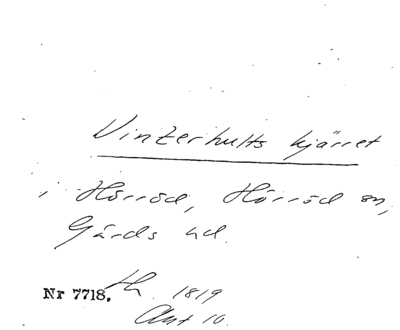 Vinterhults kjärret
i Hörröd, Hörröd sn,
Gärds hd.
Nr 7718. Lh. 1819
Akt 10.